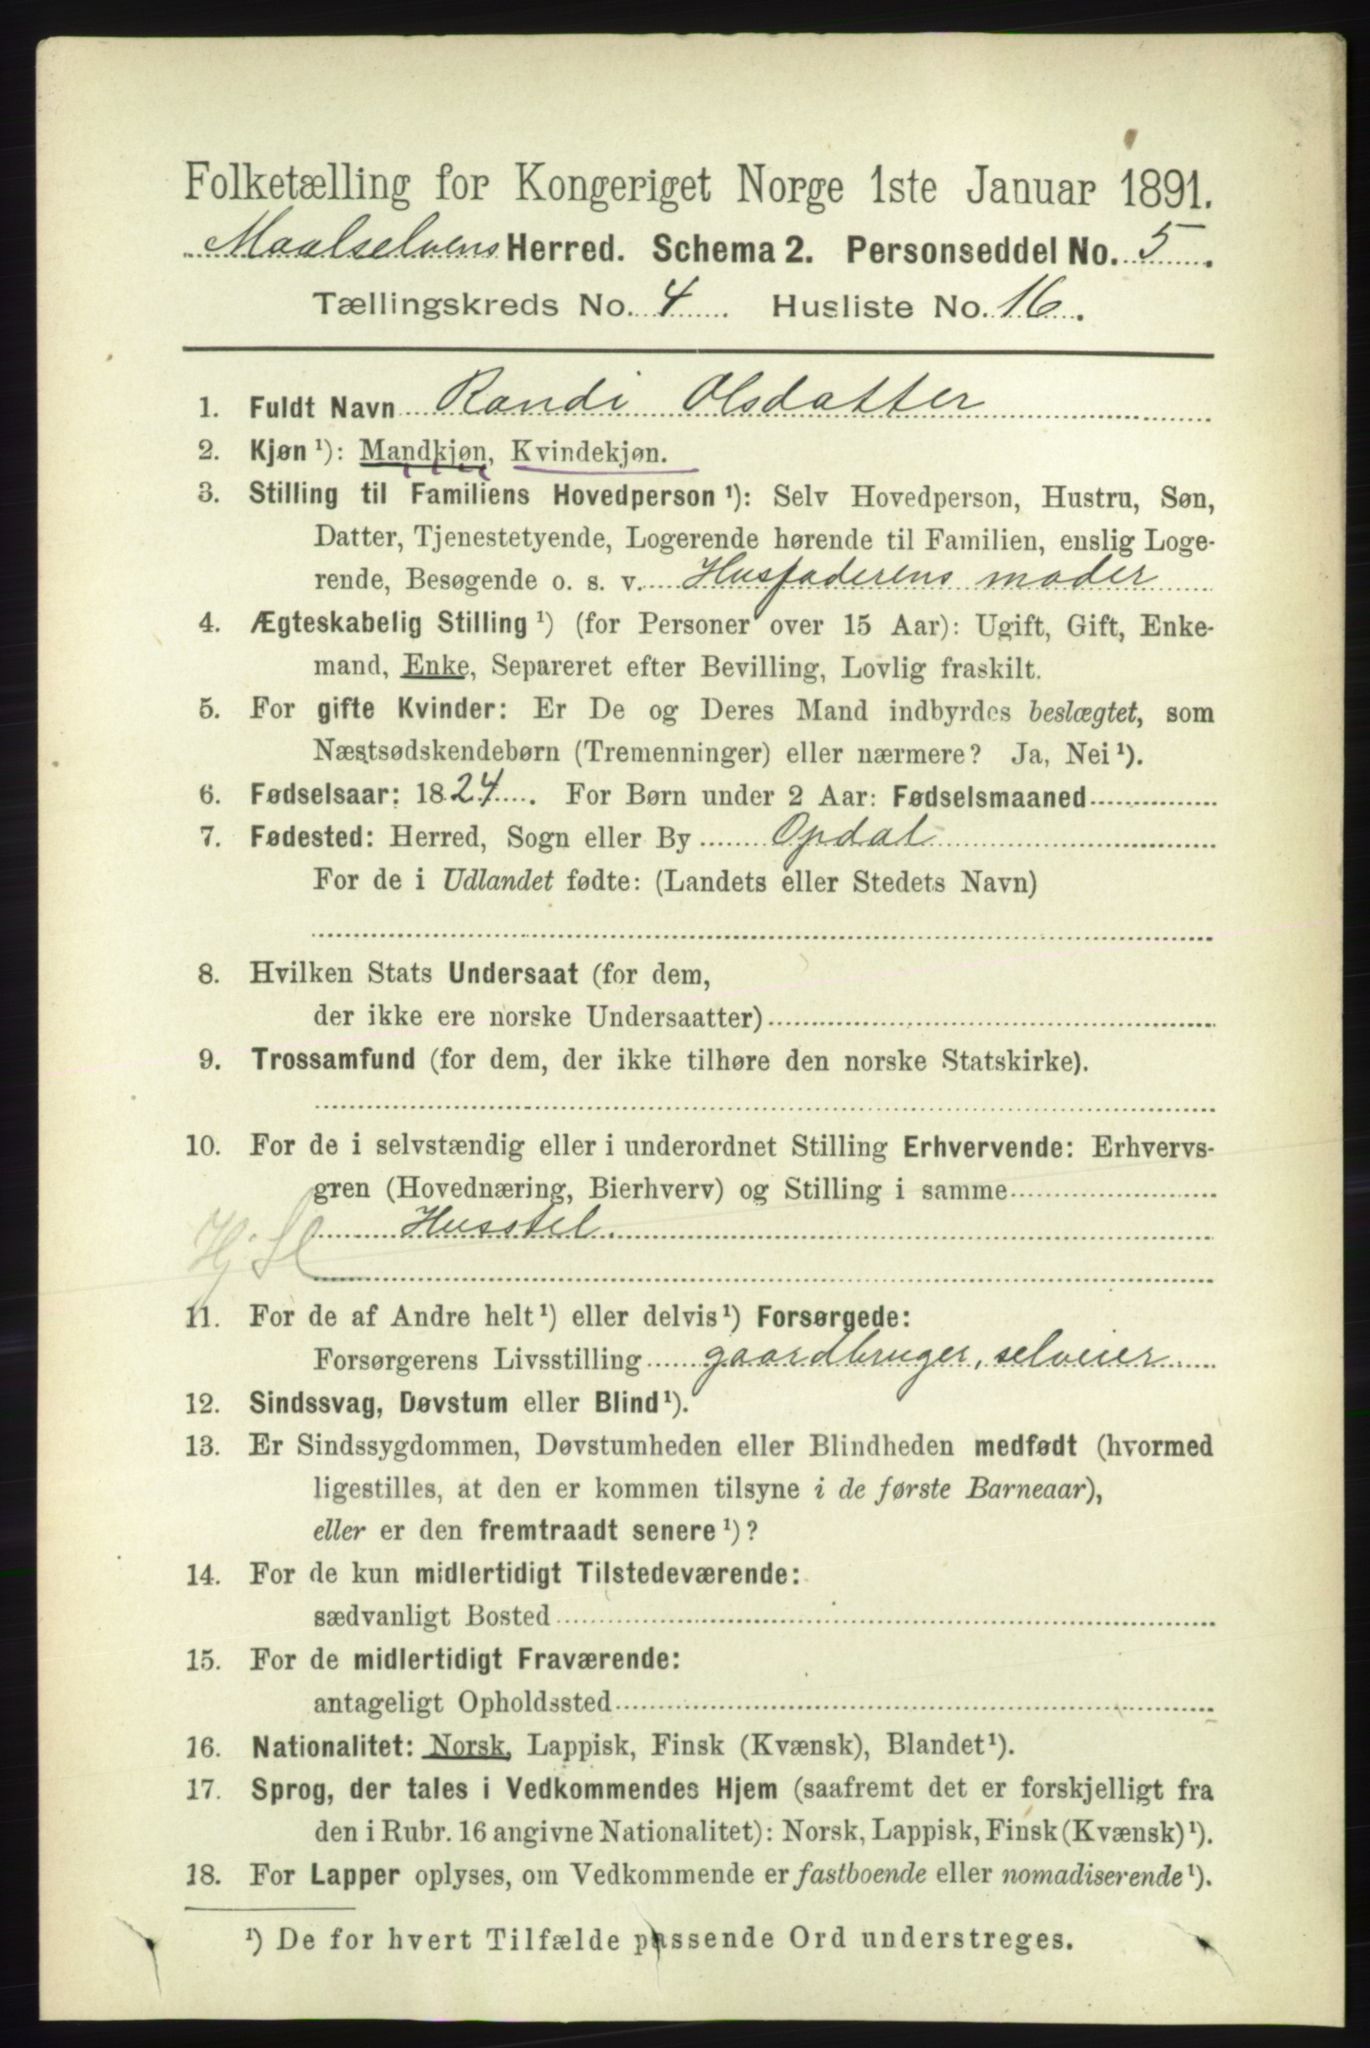 Folketælling for Kongeriget Norge 1ste Januar 1891.
Maalselvens Herred. Schema 2. Personseddel No. 5.
Tællingskreds No. 4 Husliste No. 16.
1. Fuldt Navn Randi Olsdatter
2. Kjøn ¹): Mandkjøn, Kvindekjøn.
3. Stilling til Familiens Hovedperson ¹): Selv Hovedperson, Hustru, Søn,
Datter, Tjenestetyende, Logerende hørende til Familien, enslig Loge-
rende, Besøgende o. s. v. Husfaderens moder
4. Ægteskabelig Stilling ¹) (for Personer over 15 Aar): Ugift, Gift, Enke-
mand, Enke, Separeret efter Bevilling, Lovlig fraskilt.
5. For gifte Kvinder: Er De og Deres Mand indbyrdes beslægtet, som
Næstsødskendebørn (Tremenninger) eller nærmere? Ja, Nei ¹).
6. Fødselsaar: 1824. For Børn under 2 Aar: Fødselsmaaned
7. Fødested: Herred, Sogn eller By Opdal
For de i Udlandet fødte: (Landets eller Stedets Navn)
8. Hvilken Stats Undersaat (for dem,
der ikke ere norske Undersaatter)
9. Trossamfund (for dem, der ikke tilhøre den norske Statskirke).
10. For de i selvstændig eller i underordnet Stilling Erhvervende: Erhvervs-
gren (Hovednæring, Bierhverv) og Stilling i samme
Husstel.
11. For de af Andre helt ¹) eller delvis ¹) Forsørgede:
Forsørgerens Livsstilling gaardbruger, selveier
12. Sindssvag, Døvstum eller Blind ¹).
13. Er Sindssygdommen, Døvstumheden eller Blindheden medfødt (hvormed
ligestilles, at den er kommen tilsyne i de første Barneaar),
eller er den fremtraadt senere ¹)?
14. For de kun midlertidigt Tilstedeværende:
sædvanligt Bosted
15. For de midlertidigt Fraværende:
antageligt Opholdssted
16. Nationalitet: Norsk, Lappisk, Finsk (Kvænsk), Blandet ¹).
17. Sprog, der tales i Vedkommendes Hjem (saafremt det er forskjelligt fra
den i Rubr. 16 angivne Nationalitet): Norsk, Lappisk, Finsk (Kvænsk) ¹).
18. For Lapper oplyses, om Vedkommende er fastboende eller nomadiserende ¹).
¹) De for hvert Tilfælde passende Ord understreges.